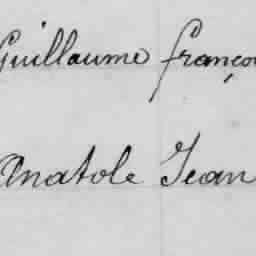 Guillaume françoi
Anatole Jean